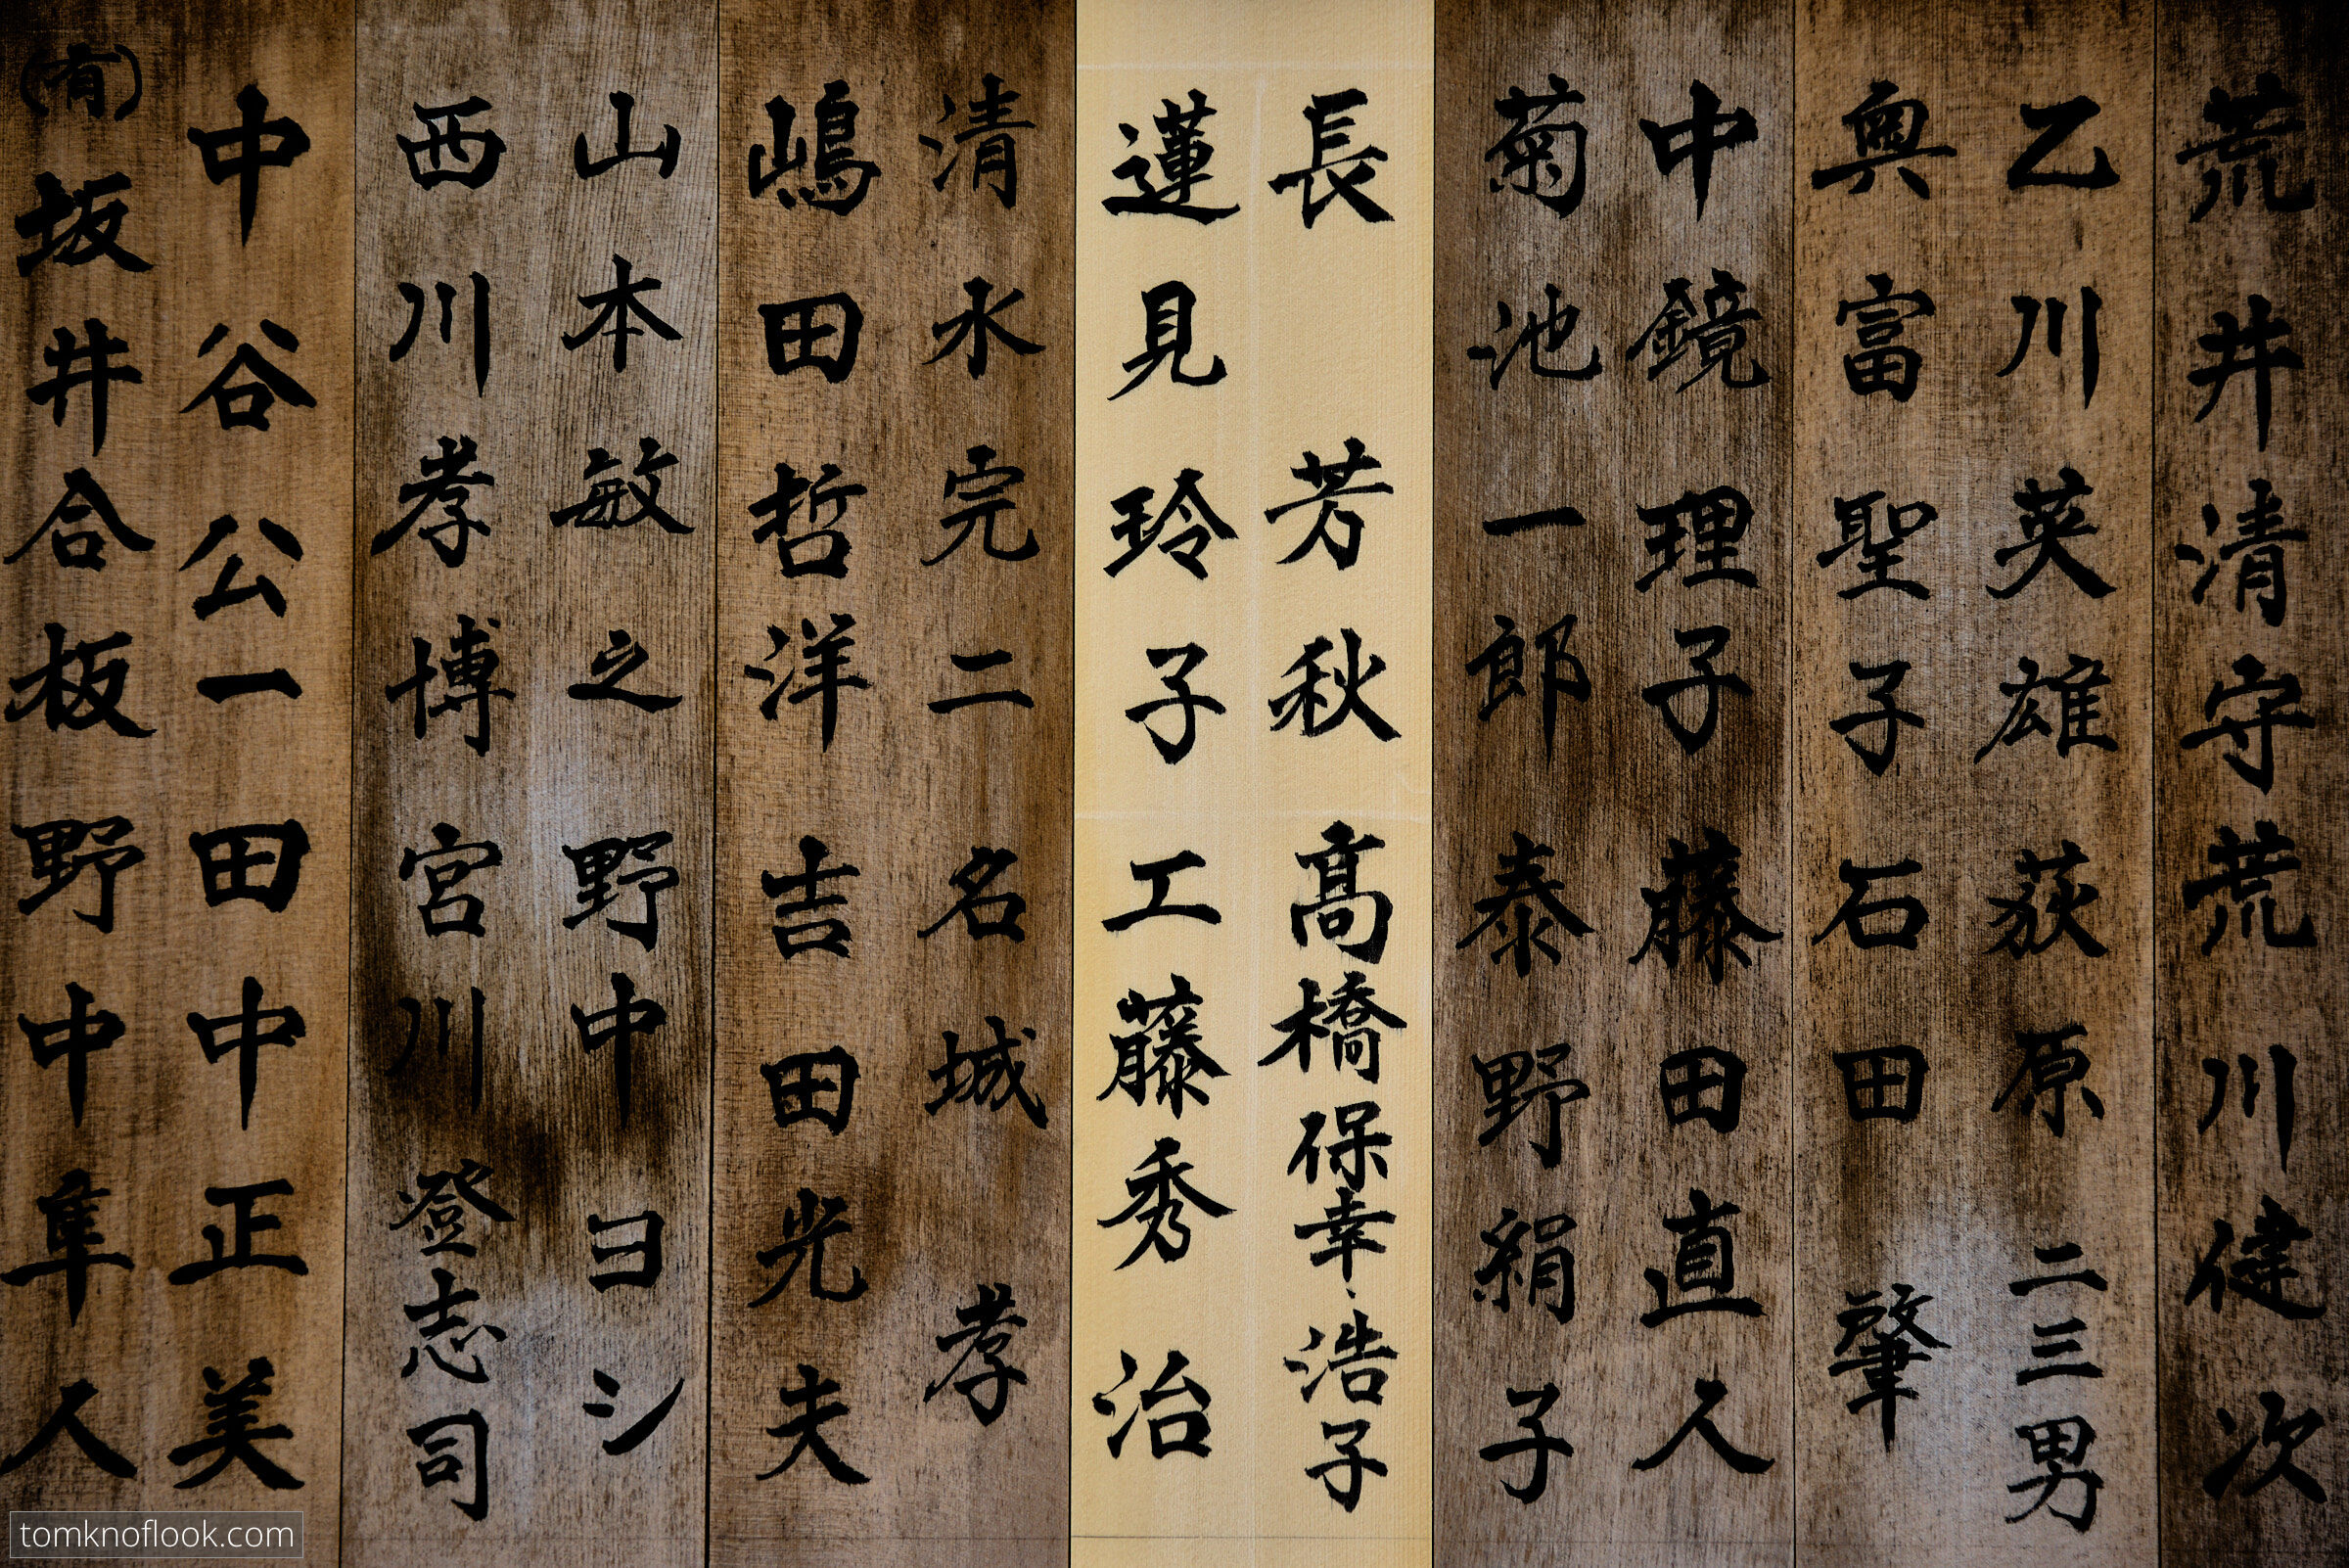 荒井清守 荒川健次
乙川英雄 荻原二三男
奥富聖子 石田肇
中鏡理子 藤田直人
菊池一郎 泰野絹子
長芳秋 髙橋保幸、浩子
蓮見玲子 工藤秀治
清水完二 名城孝
嶋田哲洋 吉田光夫
山本敏之 野中ヨシ
西川孝博 宮川登志司
中谷公一 田中正美
(有)坂井合板 野中隼人
tomknoflook.com